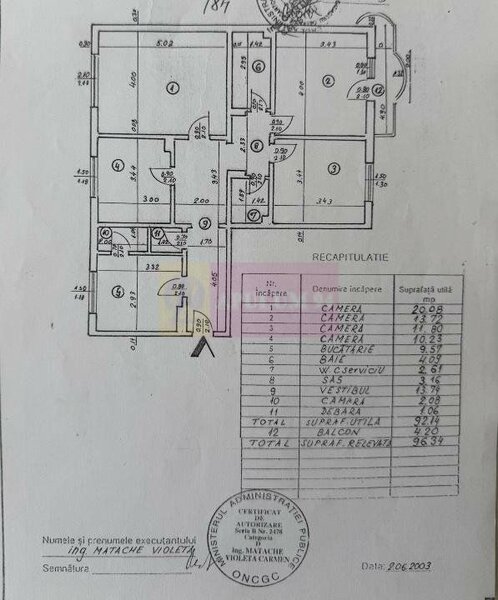 184
5.02
4.00
1
1.42
2.95
6
3.43
4.00
2
12
4.90
4
3.44
3.00
2.33
8
3.43
2.00
3.44
3
3.43
1.42
7
9
1.70
10
11
3.32
2.93
4.05
0.90
2.10
RECAPITULATIE
Nr. încăpere Denumire încăpere Suprafață utilă mp
1 CAMERĂ 20.08
2 CAMERĂ 13.77
3 CAMERĂ 11.80
4 CAMERĂ 10.23
5 BUCĂTĂRIE 9.57
6 BAIE 4.09
7 W.C. SERVICIU 2.61
8 SAS 3.16
9 VESTIBUL 13.74
10 CĂMARĂ 2.08
11 DEBARA 1.06
TOTAL SUPRAF. UTILĂ 92.14
12 BALCON 4.20
TOTAL SUPRAF. RELEVATĂ 96.34
MINISTERUL ADMINISTRAȚIEI PUBLICE
CERTIFICAT
DE
AUTORIZARE
Seria B Nr. 2478
Categoria
D
ing. MATACHE
VIOLETA CARMEN
ONCGC
Numele și prenumele executantului
ing. MATACHE VIOLETA
Semnătura
Data: 2.06.2003